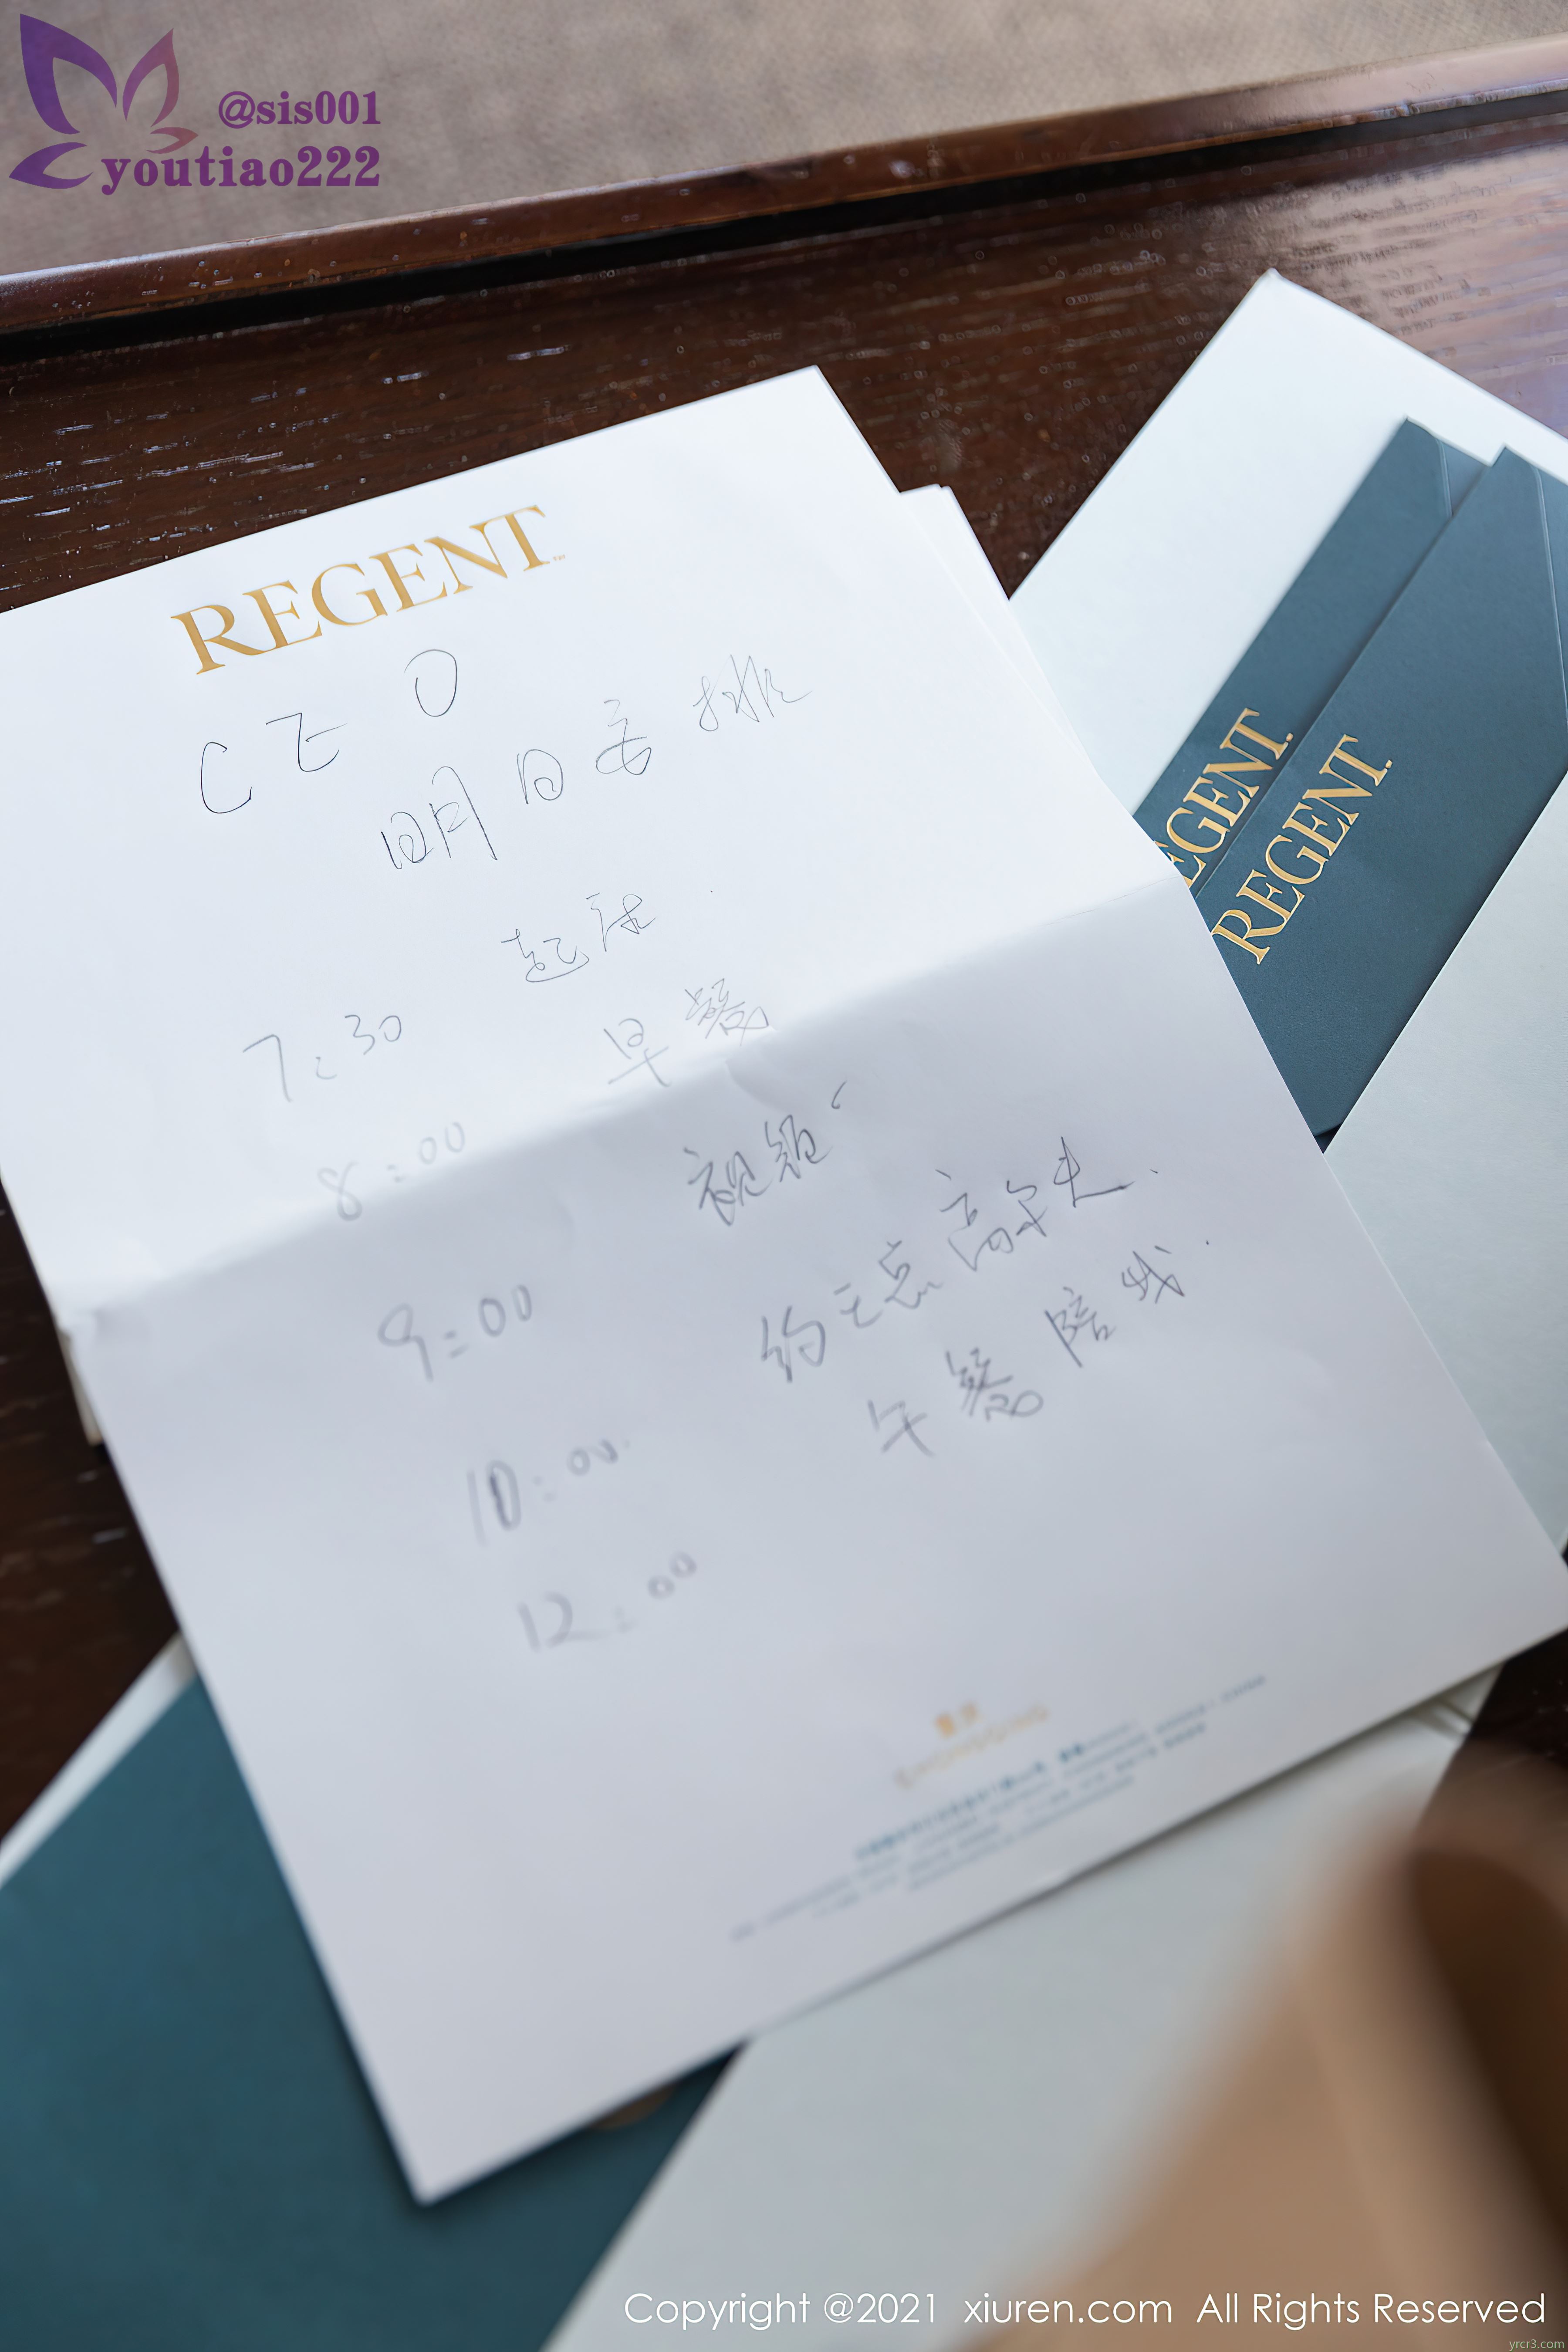 @sis001
youtiao222
REGENT
CEO
明日安排
起床.
7:30 早餐
8:00 视频
9:00 约王总高尔夫.
10:00 午餐陪我.
12:00
REGENT
REGENT
重庆
CHONGQING
Copyright @2021 xiuren.com All Rights Reserved
yrcr3.com